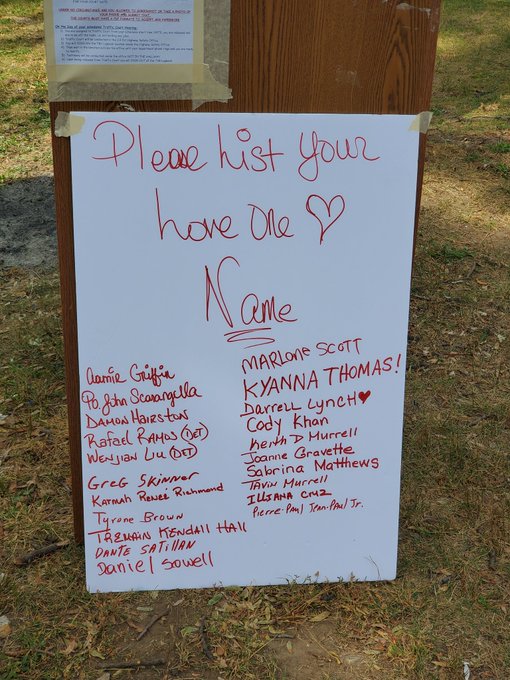 UNDER NO CIRCUMSTANCES ARE YOU ALLOWED TO SCREENSHOT OR TAKE A PHOTO OF
Please List Your
Love One ♡
Name
Aamir Griffin
Po. John Scarangella
DAMON HAIRSTON
Rafael RAMOS (DET)
WENJIAN LIU (DET)
GREG SKINNER
KATMAH RENEE RICHMOND
Tyrone Brown
TREMAIN KENDALL HALL
DANTE SATILLAN
Daniel Sowell
MARLONE SCOTT
KYANNA THOMAS!
Darrell Lynch♥
Cody Khan
Keith D Murrell
Joanne Gravette
Sabrina Matthews
TAVIN Murrell
ILIJANA CRUZ
Pierre-Paul Jean-Paul Jr.